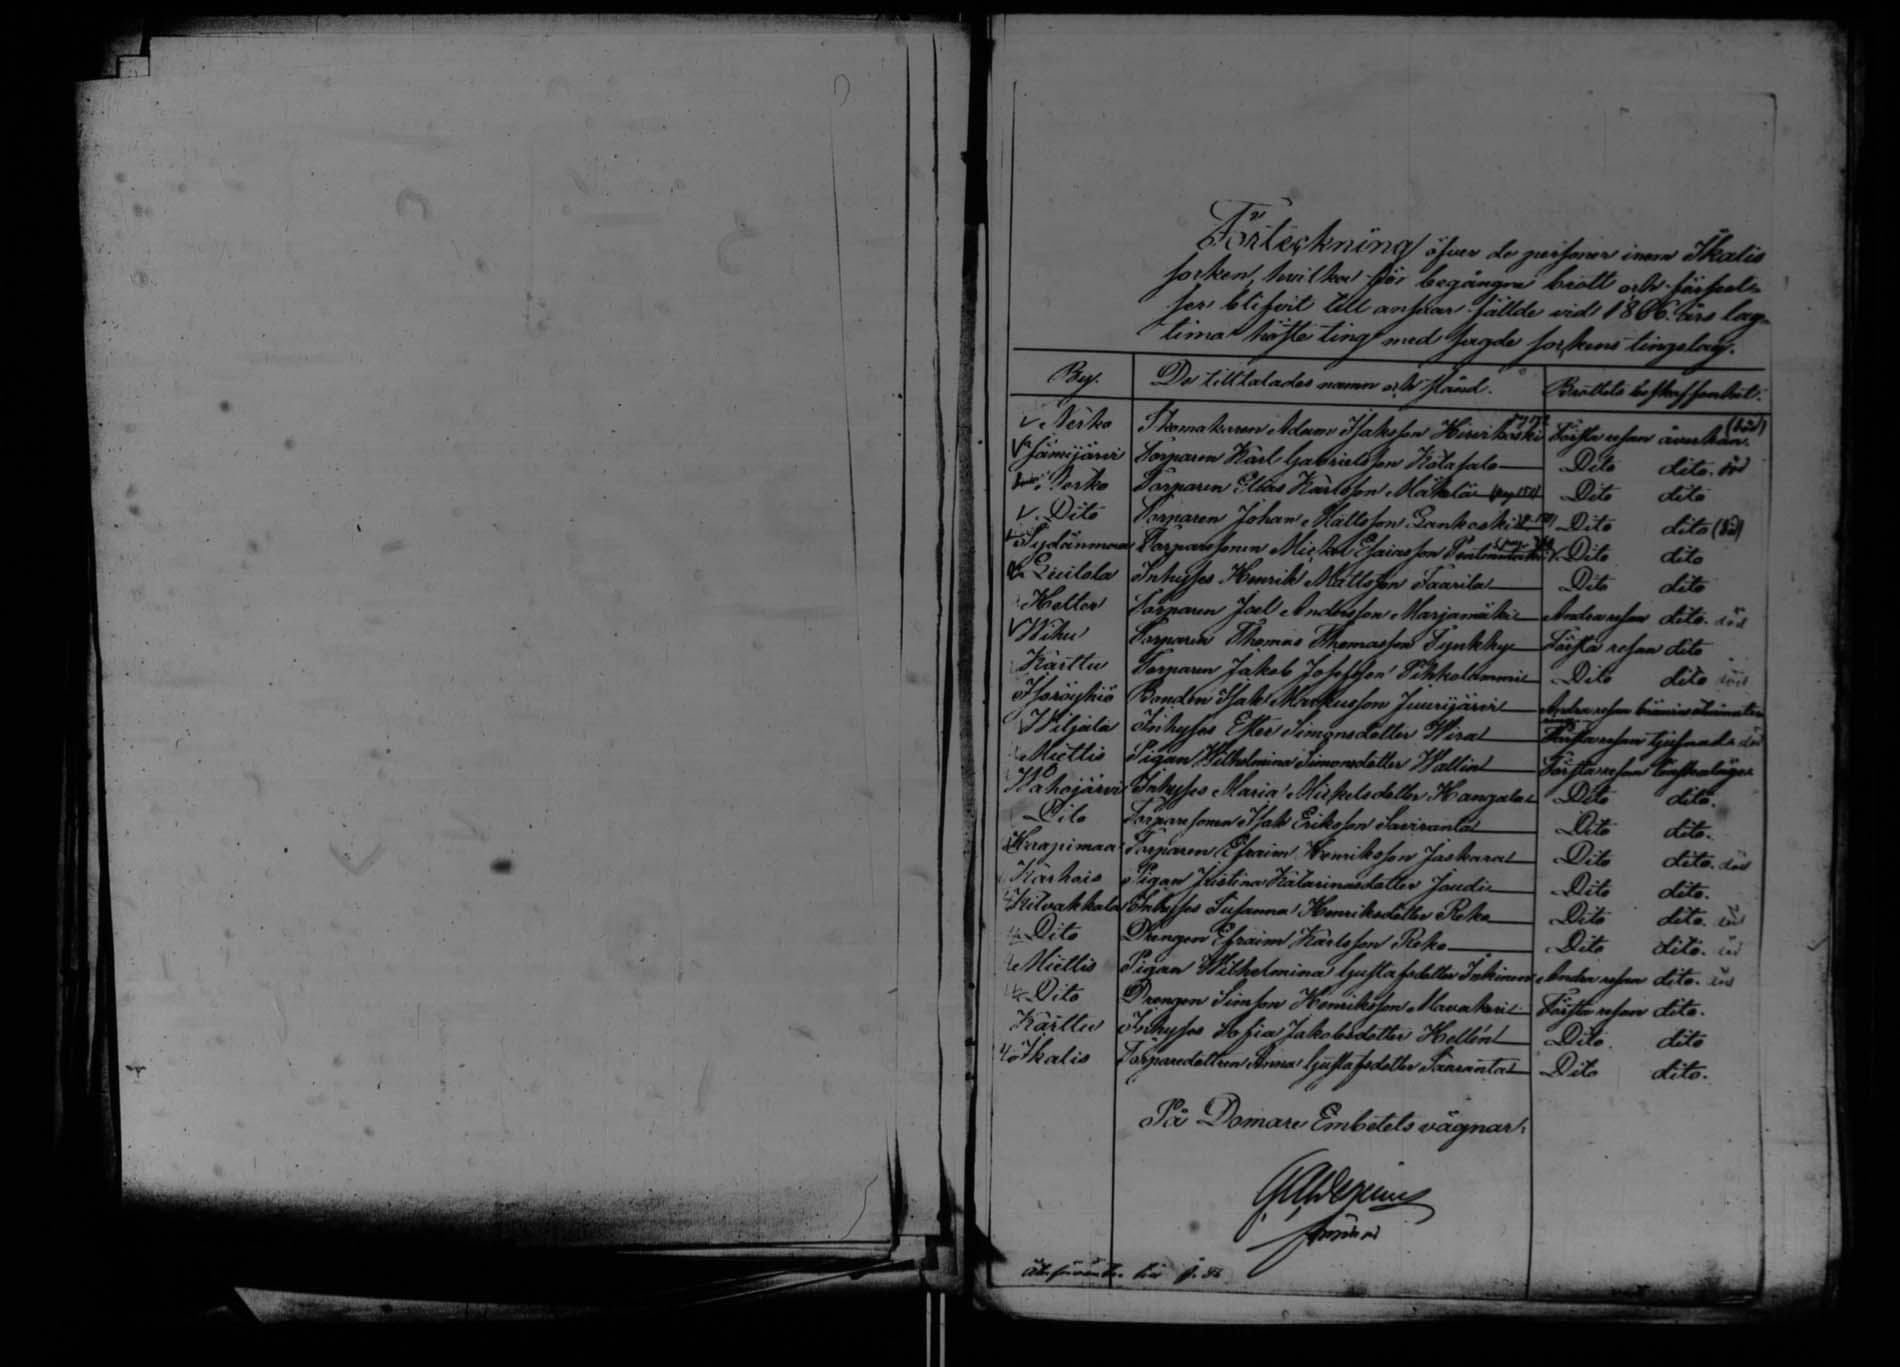 Förteckning öfver de personer inom Ikalis
socken, hvilka för begångne brott och förseel-
ser blifvit till ansvar fällde vid 1866 års lag-
tima höste ting med sagde sockens tingslag.
By. De tilltalades namn och stånd. Brottets beskaffenhet.
Nerko Skomakaren Adam Isaksson Hirvikoski Första resan åverkan. (död)
Jämijärvi Torparen Karl Gabrielsson Kolasalo Dito dito. död
Nerko Torparen Elias Karlsson Mäkelä Dito dito
Dito Torparen Johan Mattsson Lankoski Dito dito (död)
Sydänmaa Torparesonen Mickel Esaiasson Dito dito
Luilola Inhyses Henrik Mattsson Taarila Dito dito
Kelter Torparen Joel Andersson Marjamäki Andra resan dito. död
Wihu Torparen Thomas Thomasson Tynkky Första resan dito
Karttu Torparen Jakob Josefsson Pihkolammi Dito dito död
Isoröyhiö Bonden Isak Markusson Juurijärvi Andra resan
Wiljala Inhyses Ester Simonsdotter Wira Första resan tjufnad. död
Miettis Pigan Wilhelmina Simonsdotter Wallin Första resan lönskaläge.
Wahojärvi Inhyses Maria Mickelsdotter Kangas Dito dito.
Dito Torparesonen Isak Eriksson Saviranta Dito dito.
Haapimaa Torparen Efraim Henriksson Jaskara Dito dito. död
Karhois Pigan Kristina Katarinasdotter Jaudi Dito dito.
Kilvakkala Inhyses Susanna Henriksdotter Reko Dito dito. död
Dito Drengen Efraim Karlsson Reko Dito dito. död
Miettis Pigan Wilhelmina Gustafsdotter Inkinen Andra resan dito. död
Dito Drengen Simson Henriksson Mavakeri Första resan dito.
Karttu Inhyses Sofia Jakobsdotter Hellén Dito dito
Ikalis Torparedottren Anna Gustafsdotter Saaranta Dito dito.
På Domare Embetets vägnar: